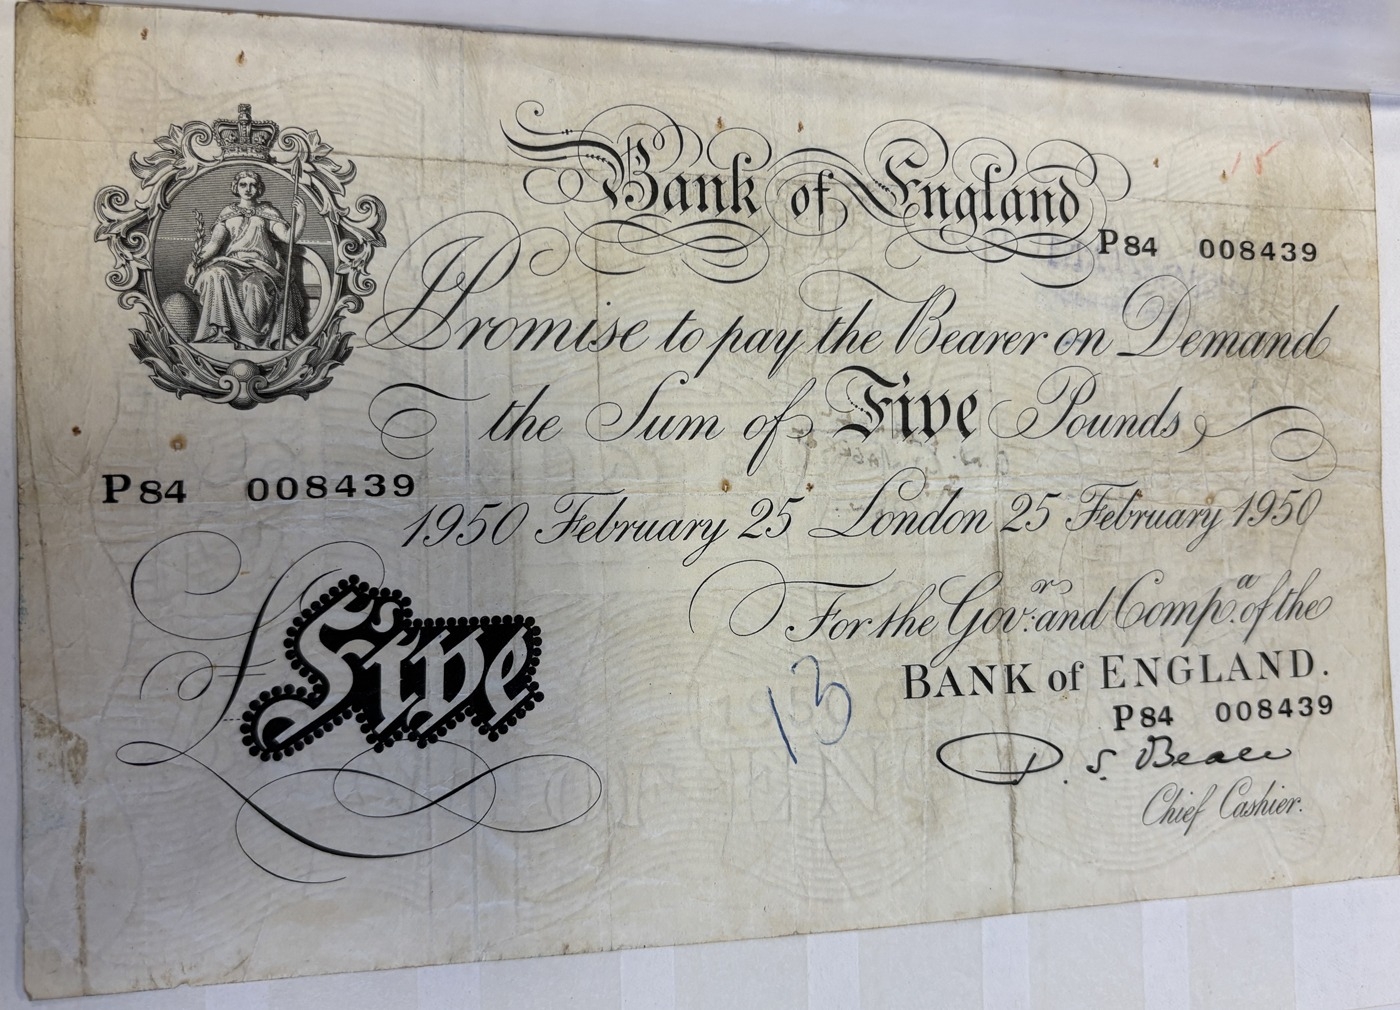 Bank of England
P84 008439
I Promise to pay the Bearer on Demand
the Sum of Five Pounds
P84 008439
1950 February 25 London 25 February 1950
For the Gov.r and Comp.a of the
BANK of ENGLAND.
£ Five
13
P84 008439
P. S. Beale
Chief Cashier.